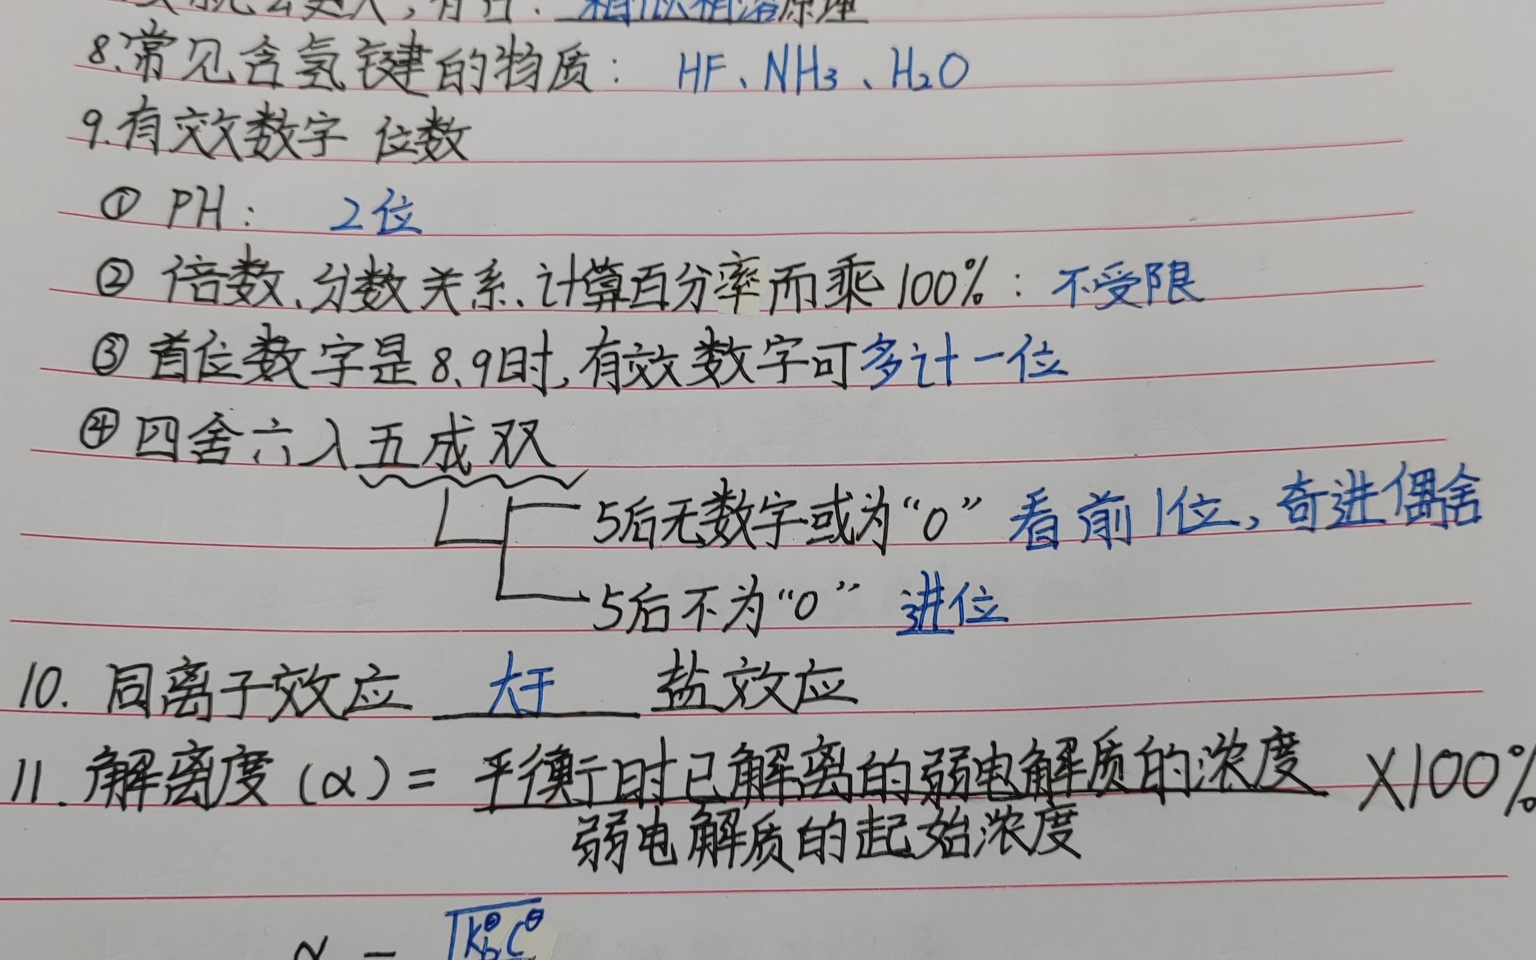 相似相溶原理
8.常见含氢键的物质： HF、NH₃、H₂O
9.有效数字 位数
① PH： 2位
② 倍数、分数关系、计算百分率而乘100%：不受限
③ 首位数字是8、9时，有效数字可多计一位
④ 四舍六入五成双
5后无数字或为“0” 看前1位，奇进偶舍
5后不为“0” 进位
10. 同离子效应 大于 盐效应
11. 解离度（α）= 平衡时已解离的弱电解质的浓度 ×100%
弱电解质的起始浓度